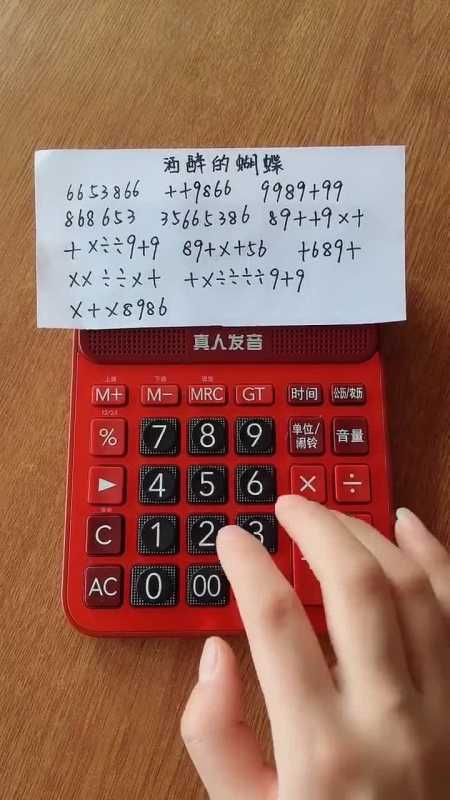 酒醉的蝴蝶
6653866 ++9866 9989+99
868653 35665386 89++9×+
+×÷÷9+9 89+×+56 +689+
×× ÷÷×+ +×÷÷÷÷9+9
×+×8986
真人发音
M+ M- MRC GT 时间 公历/农历
% 7 8 9 单位/闹铃 音量
4 5 6 × ÷
C 1 2 3
AC 0 00